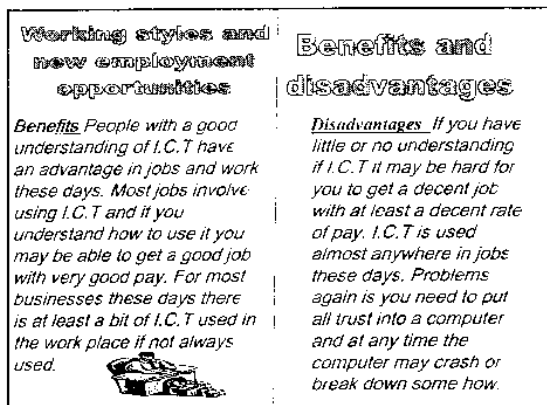 Working styles and
new employment
opportunities
Benefits People with a good
understanding of I.C.T have
an advantage in jobs and work
these days. Most jobs involve
using I.C.T and if you
understand how to use it you
may be able to get a good job
with very good pay. For most
businesses these days there
is at least a bit of I.C.T used in
the work place if not always
used.
Benefits and
disadvantages
Disadvantages If you have
little or no understanding
if I.C.T it may be hard for
you to get a decent job
with at least a decent rate
of pay. I.C.T is used
almost anywhere in jobs
these days. Problems
again is you need to put
all trust into a computer
and at any time the
computer may crash or
break down some how.